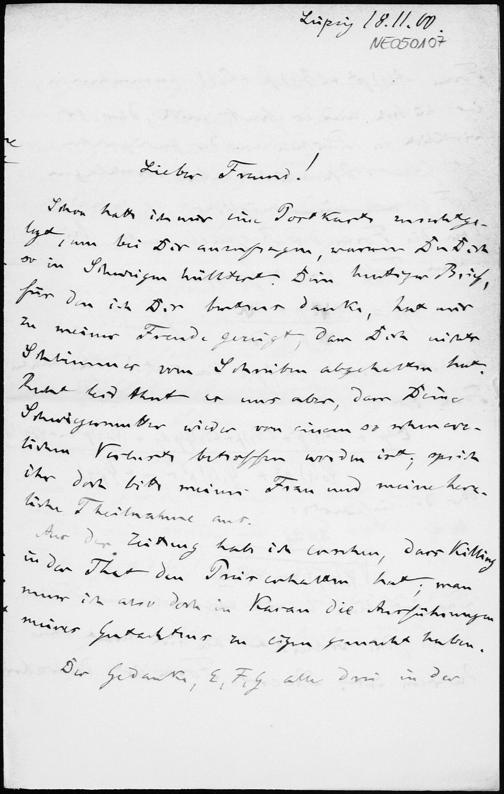 Leipzig 18.11.00.
NE050107
Lieber Freund!
Schon hatte ich mir eine Postkarte zurechtge-
legt, um bei Dir anzufragen, warum Du Dich
so in Schweigen hülltest. Dein heutiger Brief,
für den ich Dir bestens danke, hat mir
zu meiner Freude gezeigt, dass Dich nichts
Schlimmes vom Schreiben abgehalten hat.
Recht leid thut es uns aber, dass Deine
Schwiegermutter wieder von einem so schmerz-
lichen Verluste betroffen worden ist; sprich
ihr doch bitte meiner Frau und meine herz-
liche Theilnahme aus.
Aus der Zeitung habe ich ersehen, dass Killing
in der That den Preis erhalten hat; man
muss sich also doch in Kasan die Ausführungen
meines Gutachtens zu eigen gemacht haben.
Der Gedanke, E, F, G alle drei in der